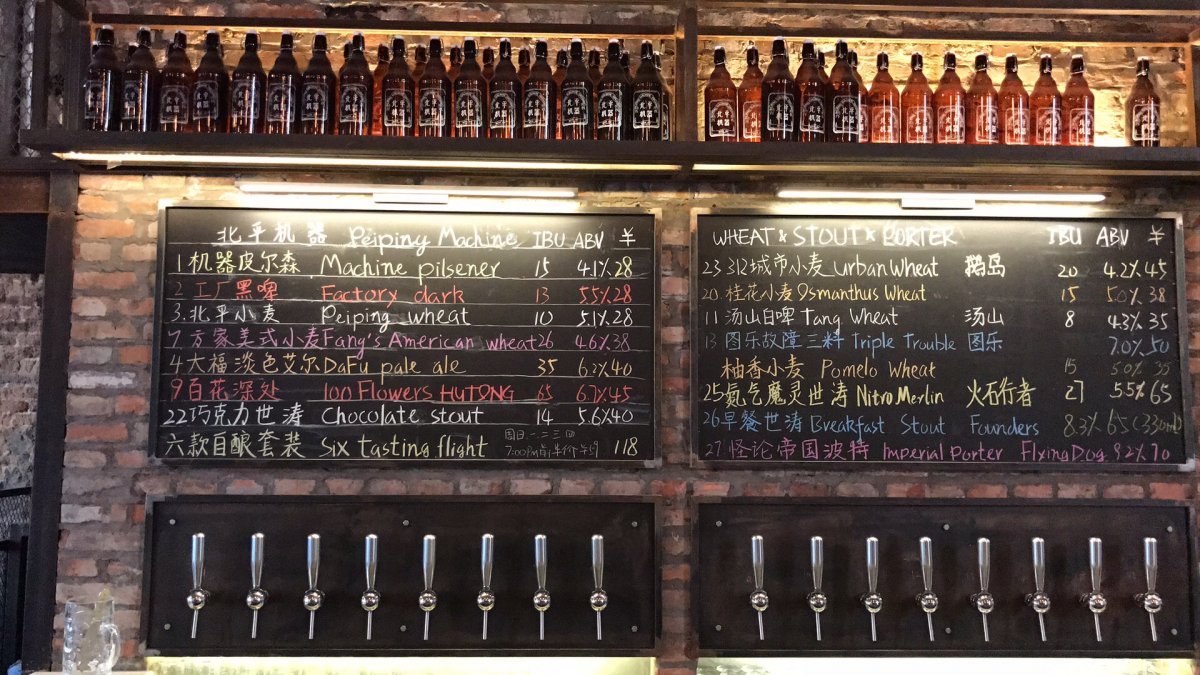 北平机器 Peiping Machine IBU ABV ¥
1 机器皮尔森 Machine pilsener 15 4.1% 28
2 工厂黑啤 Factory dark 13 5.5% 28
3. 北平小麦 Peiping wheat 10 5.1% 28
7 方家美式小麦 Fang's American wheat 26 4.6% 38
4 大福淡色艾尔 DaFu pale ale 35 6.2% 40
9 百花深处 100 Flowers HUTONG 65 6.7% 45
22 巧克力世涛 Chocolate stout 14 5.6% 40
六款自酿套装 Six tasting flight 118
WHEAT & STOUT & PORTER IBU ABV ¥
23 312城市小麦 Urban Wheat 鹅岛 20 4.2% 45
20 桂花小麦 Osmanthus Wheat 15 5.0% 38
11 汤山白啤 Tang Wheat 汤山 8 4.3% 35
13 图乐故障三料 Triple Trouble 图乐 7.0% 50
柚香小麦 Pomelo Wheat 15 5.0% 35
25 氮气魔灵世涛 Nitro Merlin 火石行者 27 5.5% 65
26 早餐世涛 Breakfast Stout Founders 8.3% 65
27 怪论帝国波特 Imperial Porter Flying Dog 9.2% 70